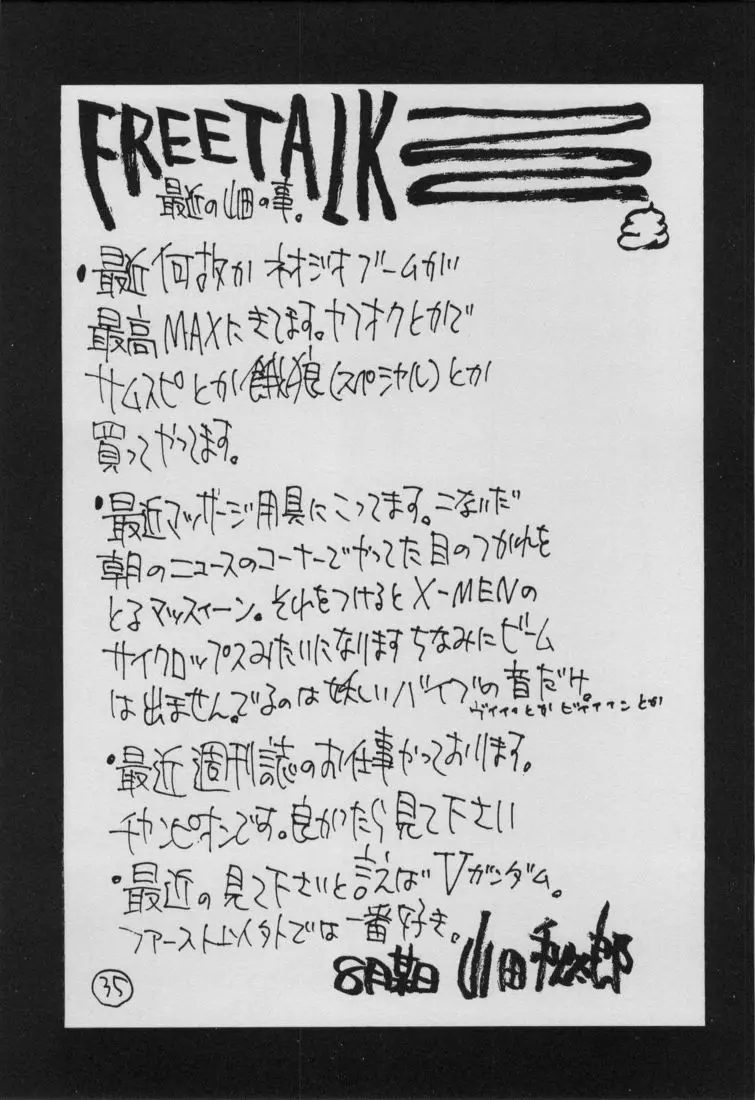 FREETALK
最近の山田の事。
・最近何故かネオジオブームが
最高MAXにきてます。ヤフオクとかで
サムスピとか餓狼(スペシャル)とか
買ってやってます。
・最近マッサージ用具にこってます。こないだ
朝のニュースのコーナーでやってた目のつかれを
とるマッスィーン。それをつけるとX-MENの
サイクロップスみたいになりますちなみにビーム
は出ません。でるのは妖しいバイブの音だけ。
ヴィィィとかビィィィンとか
・最近週刊誌のお仕事やっております。
チャンピオンです。良かったら見て下さい
・最近の見て下さいと言えばVガンダム。
ファースト以外では一番好き。
8月某日 山田
35